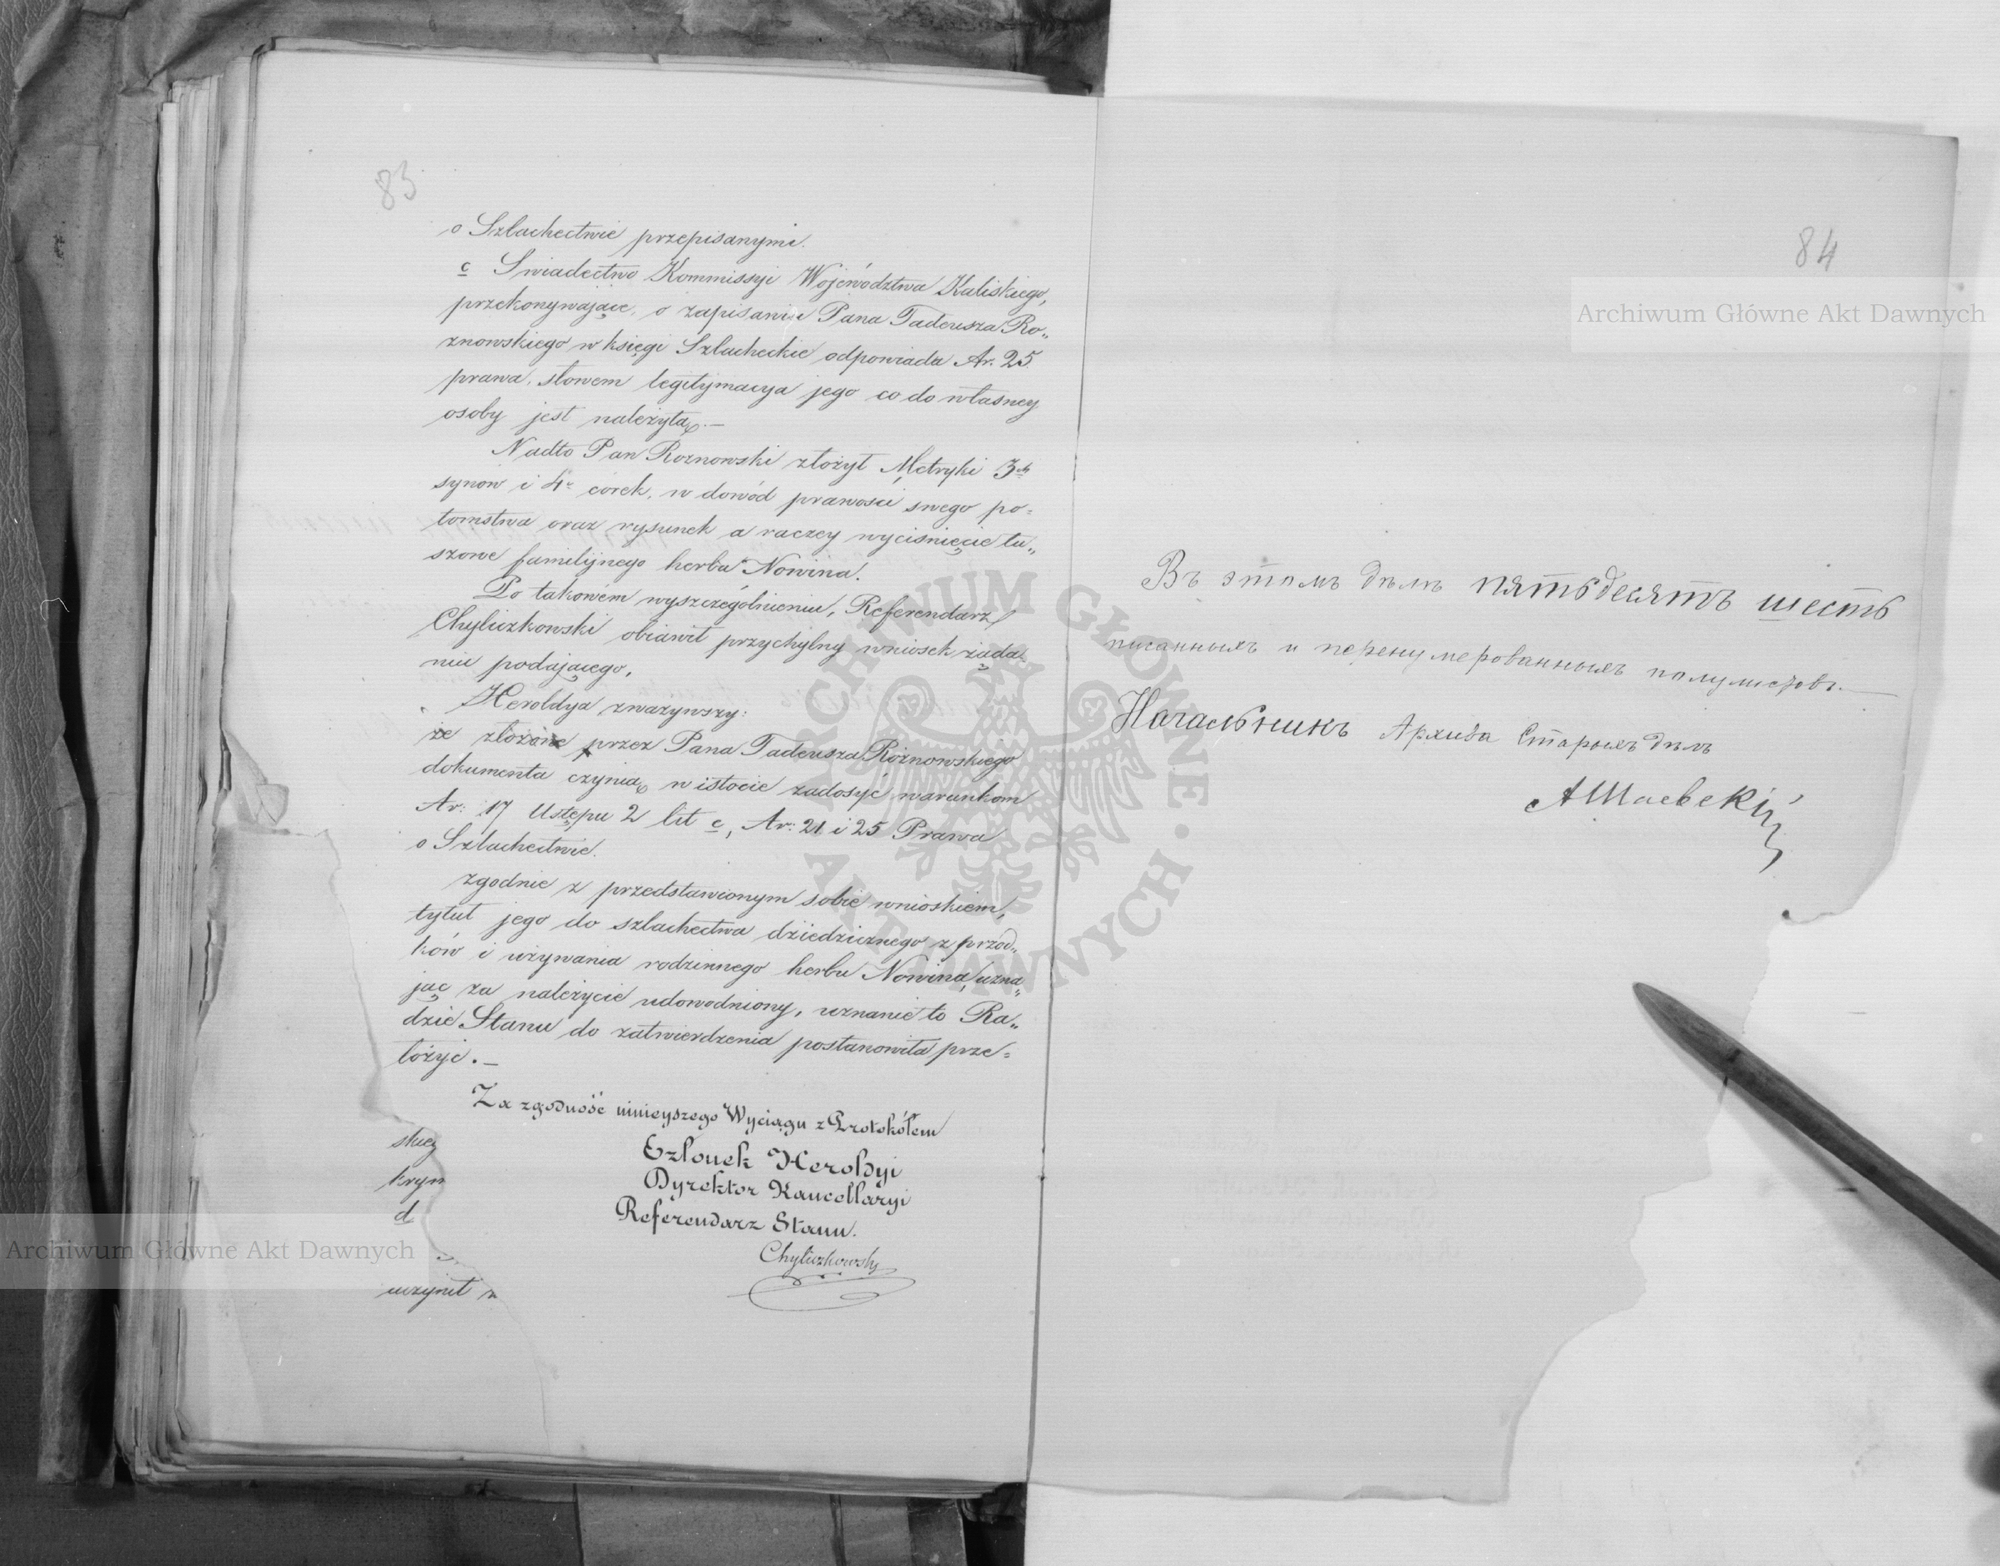 83
o Szlachectwie przepisanymi.
c Swiadectwo Kommissyi Województwa Kaliskiego,
przekonywające, o zapisaniu Pana Tadeusza Ro„
znowskiego w księgi Szlacheckie odpowiada Ar. 25
prawa. słowem legitymacya jego co do własney
osoby jest należytą.—
Nadto Pan Roznowski złożył Metryki 3ch
synów i 4r córek, w dowód prawości swego po=
tomstwa oraz rysunek a raczey wyciśnięcie tu„
szowe familijnego herbu Nowina.
Po takowem wyszczególnieniu, Referendarz
Chyliczkowski obiawił przychylny wniosek żąda
niu podającego,
Heroldya zważywszy:
że złożone przez Pana Tadeusza Rożnowskiego
dokumenta czynią w istocie zadosyć warunkom
Ar: 17 Ustępu 2 lit c, Ar: 21 i 25 Prawa
o Szlachectwie.
zgodnie z przedstawionym sobie wnioskiem,
tytuł jego do szlachectwa dziedzicznego z przod„
ków i używania rodzinnego herbu Nowina, uzna„
jąc za należycie udowodniony, uznanie to Ra„
dzie Stanu do zatwierdzenia postanowiła prze=
łożyć.—
Za zgodność ninieyszego Wyciągu z Protokółem
Członek Heroldyi
Dyrektor Kancellaryi
Referendarz Stanu.
Chyliczkowsky
służ
krym
d
uczynił
84
Въ этомъ дѣлѣ пятьдесятъ шесть
писанныхъ и перенумерованныхъ полулистовъ.—
Начальникъ Архива Старыхъ дѣлъ
АШаевскій
Archiwum Główne Akt Dawnych
Archiwum Główne Akt Dawnych
ARCHIWUM GŁÓWNE AKT DAWNYCH